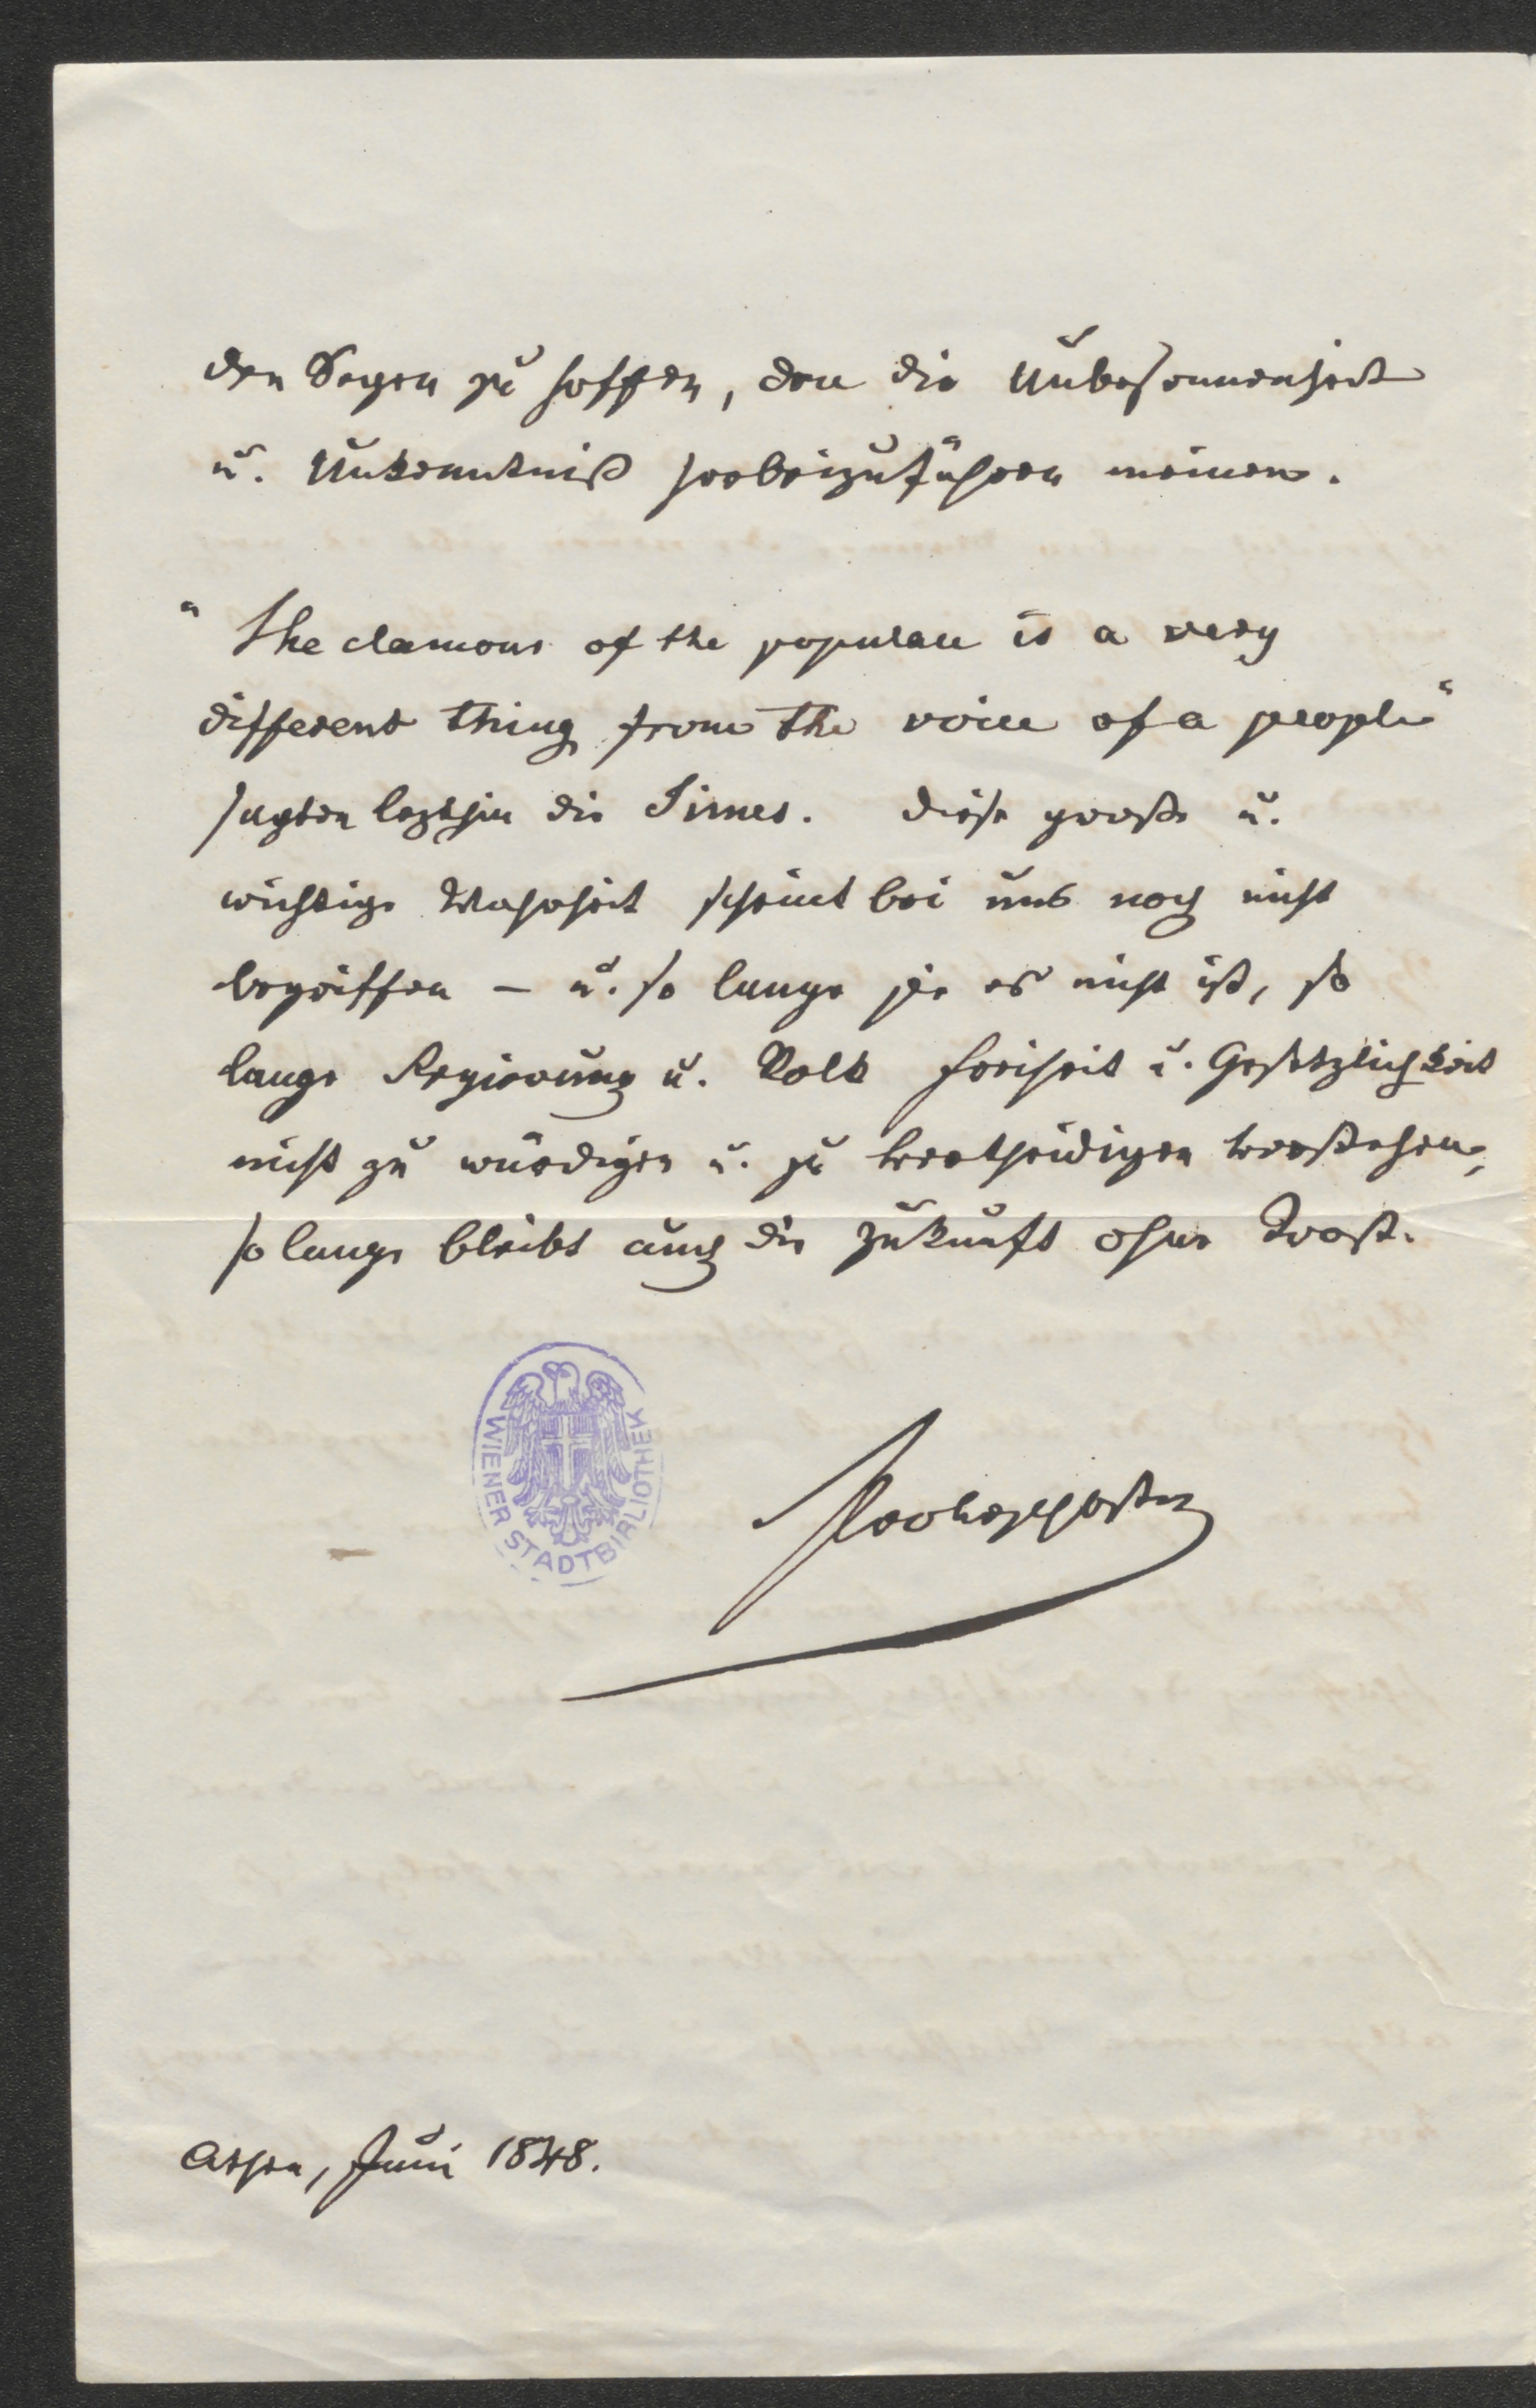 den Segen zu hoffen, den die Unbesonnenheit
u. Unkenntniß herbeizuführen meinen.
"The clamour of the populace is a very
different thing from the voice of a people"
sagten letzthin die Times. Diese große u.
wichtige Wahrheit scheint bei uns noch nicht
begriffen – u. so lange sie es nicht ist, so
lange Regierung u. Volk Freiheit u. Gesetzlichkeit
nicht zu würdigen u. zu vertheidigen verstehen,
so lange bleibt auch die Zukunft ohne Trost.
WIENER STADTBIBLIOTHEK
Prokesch Osten
Athen, Juni 1848.